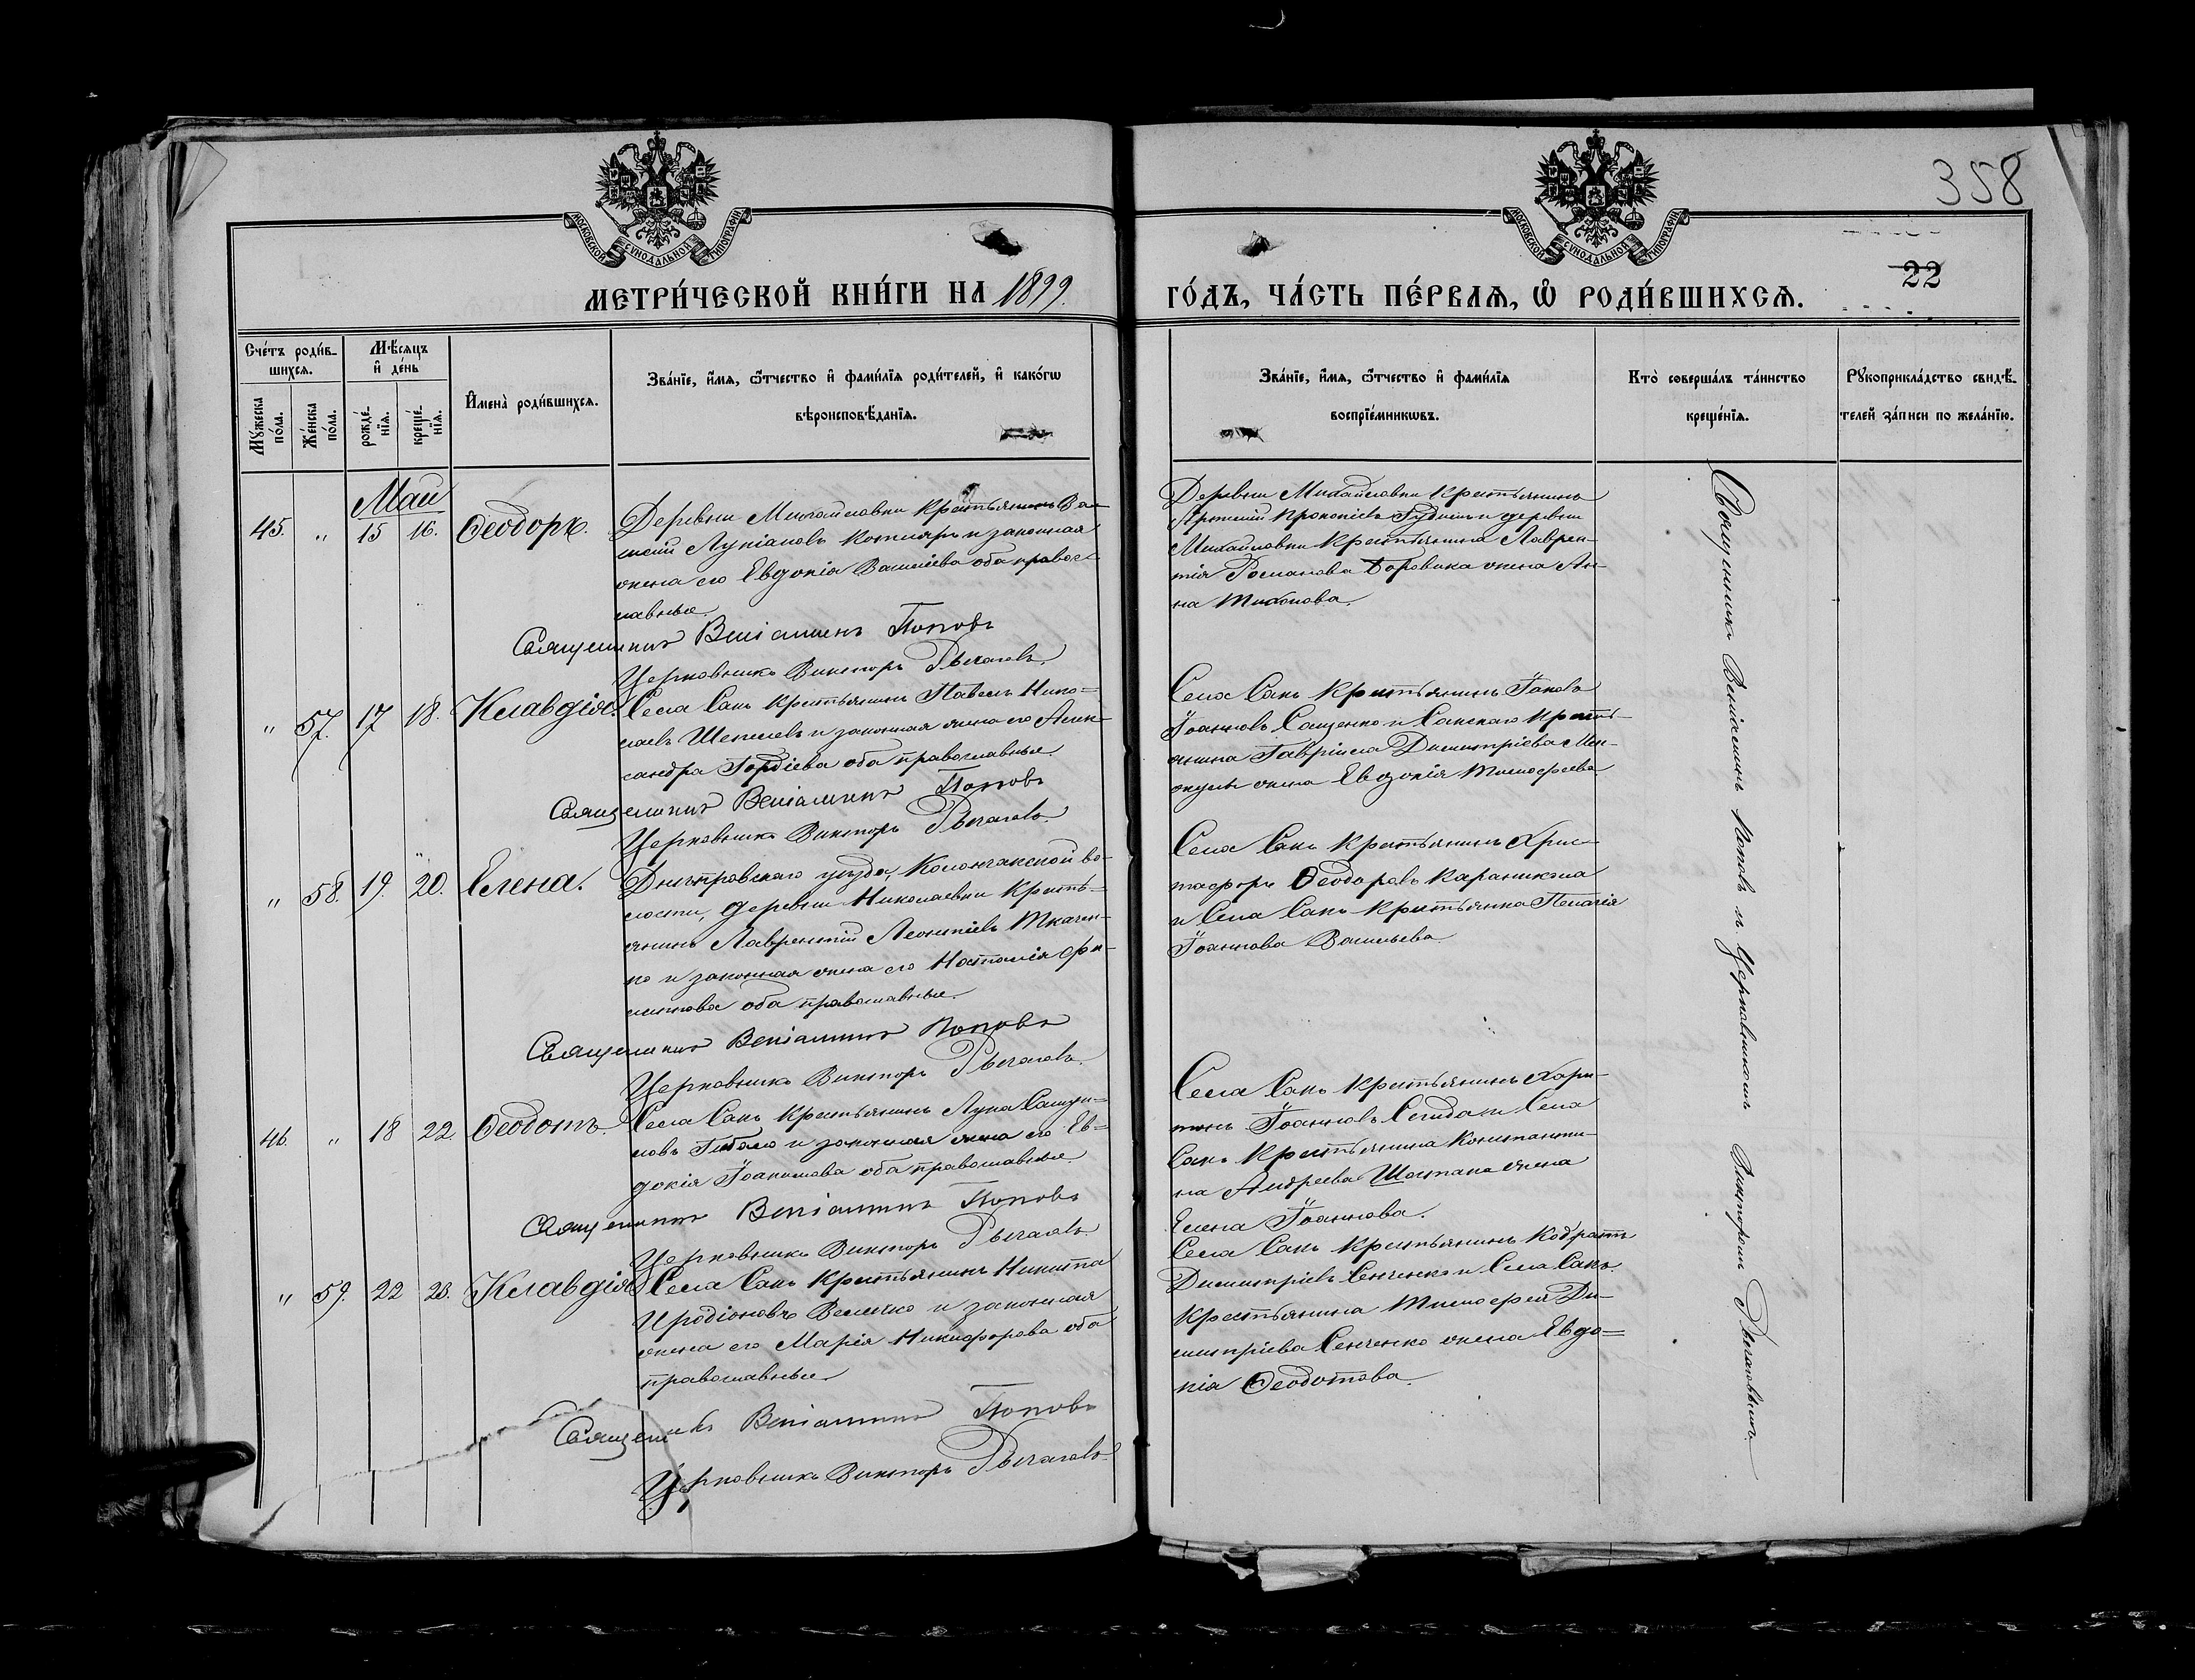 358
МОСКОВСКОЙ СѴНОДАЛЬНОЙ ТИПОГРАФІИ
МОСКОВСКОЙ СѴНОДАЛЬНОЙ ТИПОГРАФІИ
22
МЕТРИ́ЧЕСКОЙ КНИ́ГИ НА 1899.
ГО́ДЪ, ЧА́СТЬ ПЕ́РВАѦ, Ѽ РОДИ́ВШИХСѦ.
Сче́тъ роди́в-
шихсѧ.
Мѣ́сѧцъ
и҆ де́нь
Му́жеска по́ла.
Же́нска по́ла.
рожде́-
нїѧ.
креще́-
нїѧ.
И҆мена̀ роди́вшихсѧ.
Зва́нїе, и҆́мѧ, ѻ҆́тчество и҆ фами́лїѧ роди́телей, и҆ како́гѡ
вѣроисповѣ́данїѧ.
Зва́нїе, и҆́мѧ, ѻ҆́тчество и҆ фами́лїѧ
воспрїе́мникѡвъ.
Кто̀ соверша́лъ та́инство
креще́нїѧ.
Рꙋкоприкла́дство свидѣ́-
телей за́писи по жела́нїю.
Май
45. " 15 16. Ѳеодоръ.
Деревни Михайловки крестьянинъ Ва-
силій Лукіановъ Котляръ и законная
жена его Евдокія Василіева оба правос-
лавные.
Священникъ Веніаминъ Поповъ
Церковникъ Викторъ Рычаловъ.
Деревни Михайловки крестьянинъ
Прокопіевъ и деревни
Михайловки крестьянина Лаврен-
тія Романова Боровика жена Ан-
на Тихонова.
" 57. 17 18. Клавдія.
Села Сакъ крестьянинъ Павелъ Нико-
лаевъ Шепелевъ и законная жена его Алек-
сандра Гордіева оба православные.
Священникъ Веніаминъ Поповъ
Церковникъ Викторъ Рычаловъ.
Села Сакъ крестьянинъ Іаковъ
Іоанновъ Сащенко и Сакскаго кресть-
янина Гавріила Димитріева Мен-
жулы жена Евдокія Тимофеева
" 58. 19. 20. Елена.
Днѣпровскаго уѣзда, Колончакской во-
лости, деревни Николаевки кресть-
янинъ Лаврентій Леонтіевъ Ткачен-
ко и законная жена его Наталія Фи-
липпова оба православные.
Священникъ Веніаминъ Поповъ
Церковникъ Викторъ Рычаловъ.
Села Сакъ крестьянинъ Хрис-
тофоръ Ѳеодоровъ Караникола
и Села Сакъ крестьянка Пелагія
Іоаннова Васильева.
46. " 18 22. Ѳеодотъ.
Села Сакъ крестьянинъ Лука Самуи-
ловъ и законная жена его Ев-
докія Іоакимова оба православные.
Священникъ Веніаминъ Поповъ
Церковникъ Викторъ Рычаловъ
Села Сакъ крестьянинъ Хари-
тонъ Іоанновъ и Села
Сакъ крестьянина Константи-
на Андреева Шостака жена
Елена Іоаннова.
" 59. 22 23. Клавдія
Села Сакъ крестьянинъ Никита
Иродіоновъ Величко и законная
жена его Марія Никифорова оба
православные
Священникъ Веніаминъ Поповъ
Церковникъ Викторъ Рычаловъ.
Села Сакъ крестьянинъ Кодратъ
Димитріевъ Сенченко и Села Сакъ
крестьянина Тимофея Ди-
митріева Сенченко жена Евдо-
кія Ѳеодотова.
Священникъ Веніаминъ Поповъ и Церковникомъ Викторомъ Рычаловымъ.